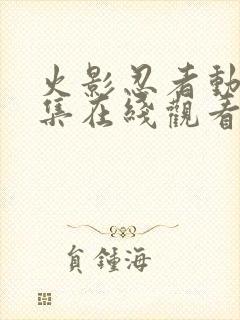 火影忍者動
集在綫觀看
負鍾海